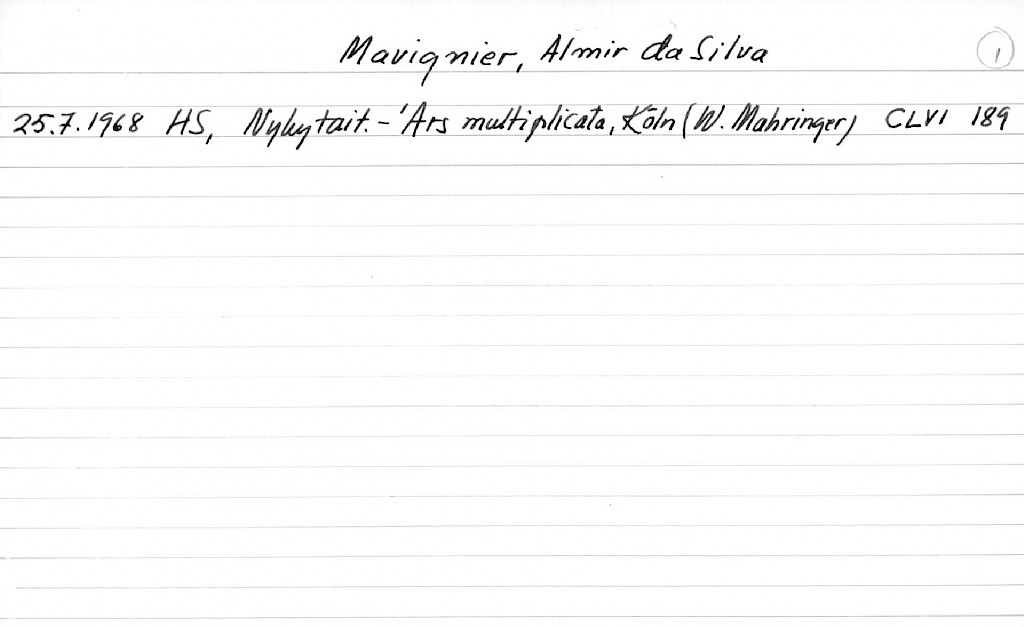 Mavignier, Almir da Silva 1
25.7.1968 HS, Nykytait. - 'Ars multiplicata, Köln (W. Mahringer) CLVI 189